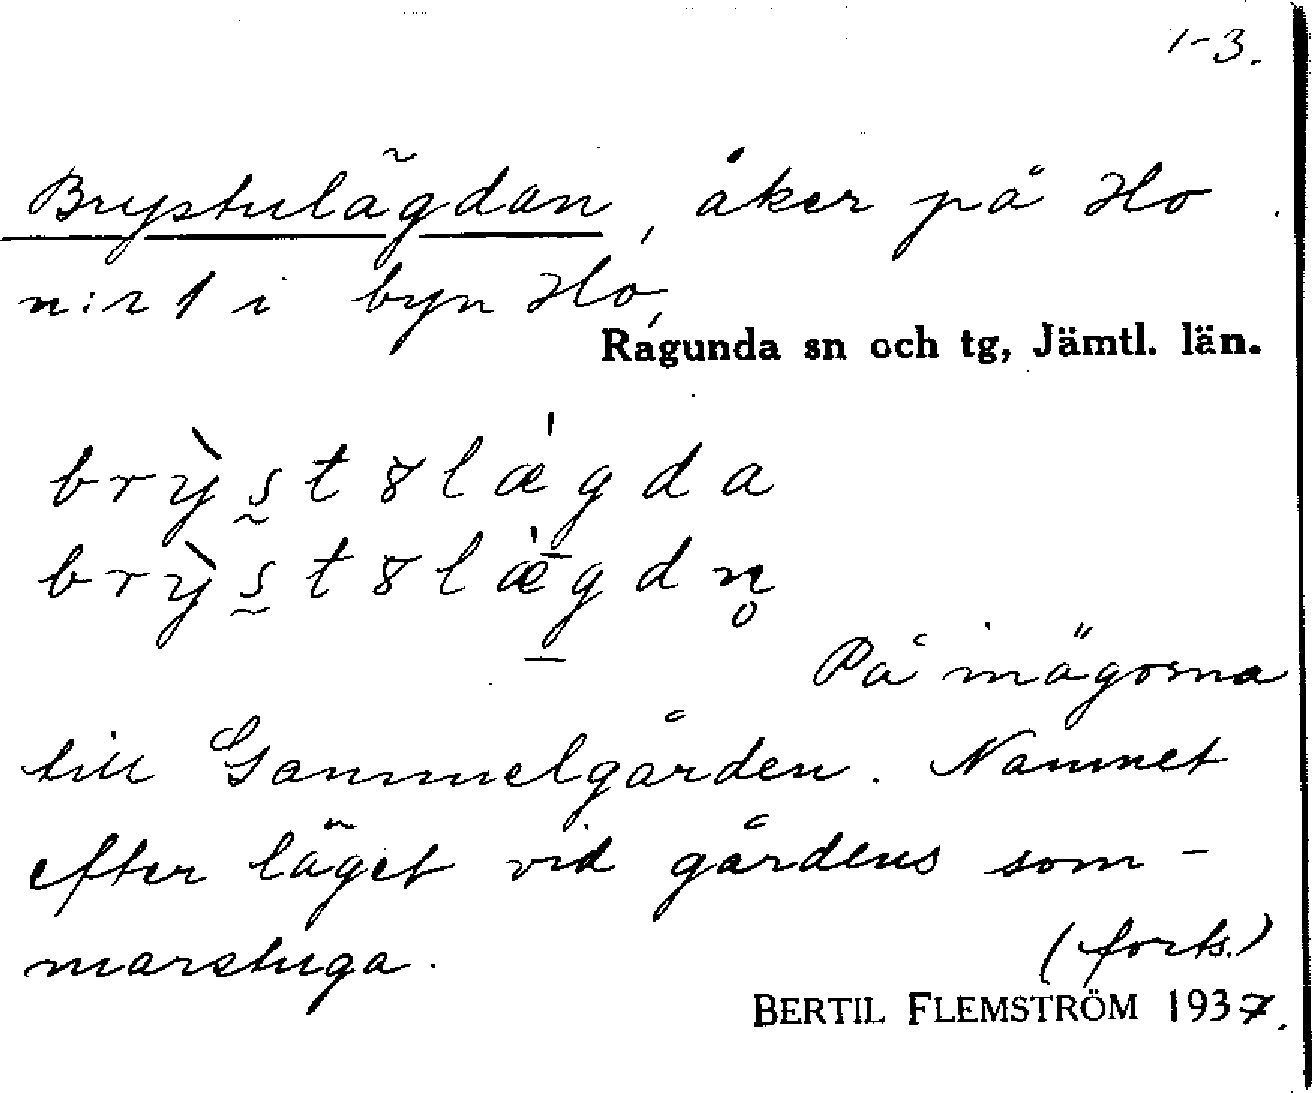 1-3.
Brystulägdan, åker på Ho
n:r 1 i byn Ho,
Ragunda sn och tg, Jämtl. län.
brỳs̰t8lǽgda
brỳs̰t8lǽg̱dn̥
På inägorna
till Gammelgården. Namnet
efter läget vid gårdens som-
marstuga.
(forts.)
BERTIL FLEMSTRÖM 1937.